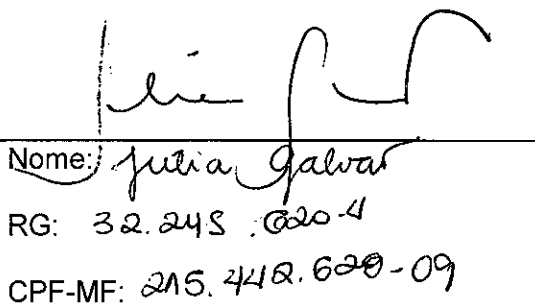 Nome: Julia Galvao
RG: 32.245.620-4
CPF-MF: 215.442.628-09